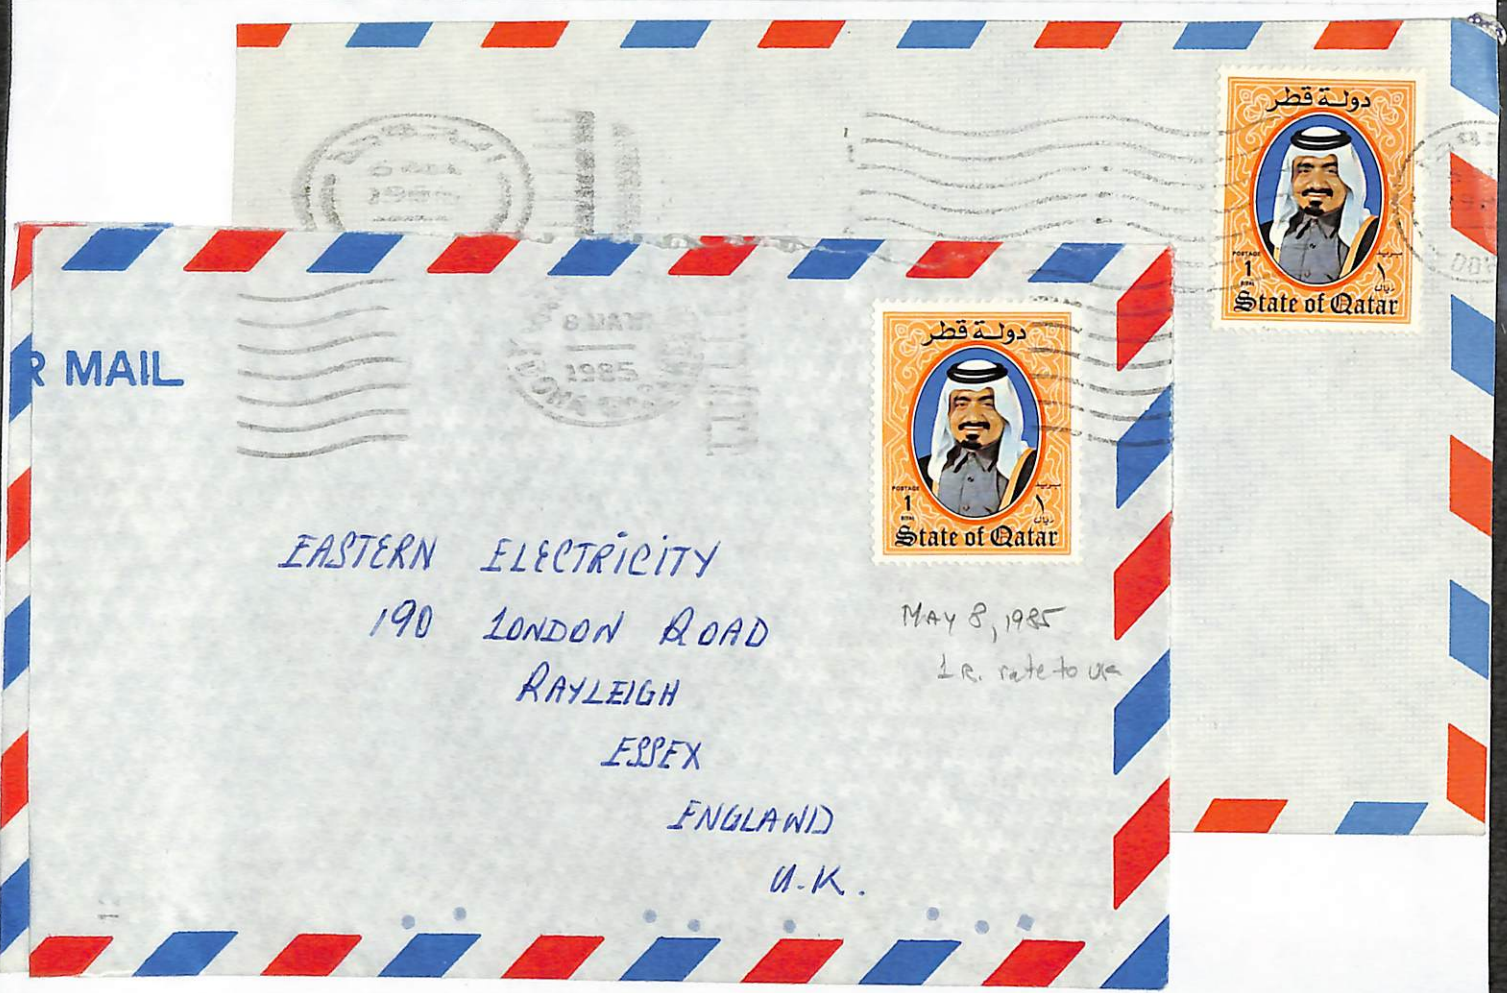 دولة قطر
POSTAGE بريد
1 ١
RIYAL ريال
State of Qatar
R MAIL
8 MAY
1985
DOHA
دولة قطر
POSTAGE بريد
1 ١
RIYAL ريال
State of Qatar
EASTERN ELECTRICITY
190 LONDON ROAD
RAYLEIGH
ESSEX
ENGLAND
U.K.
MAY 8, 1985
1 R. rate to UK